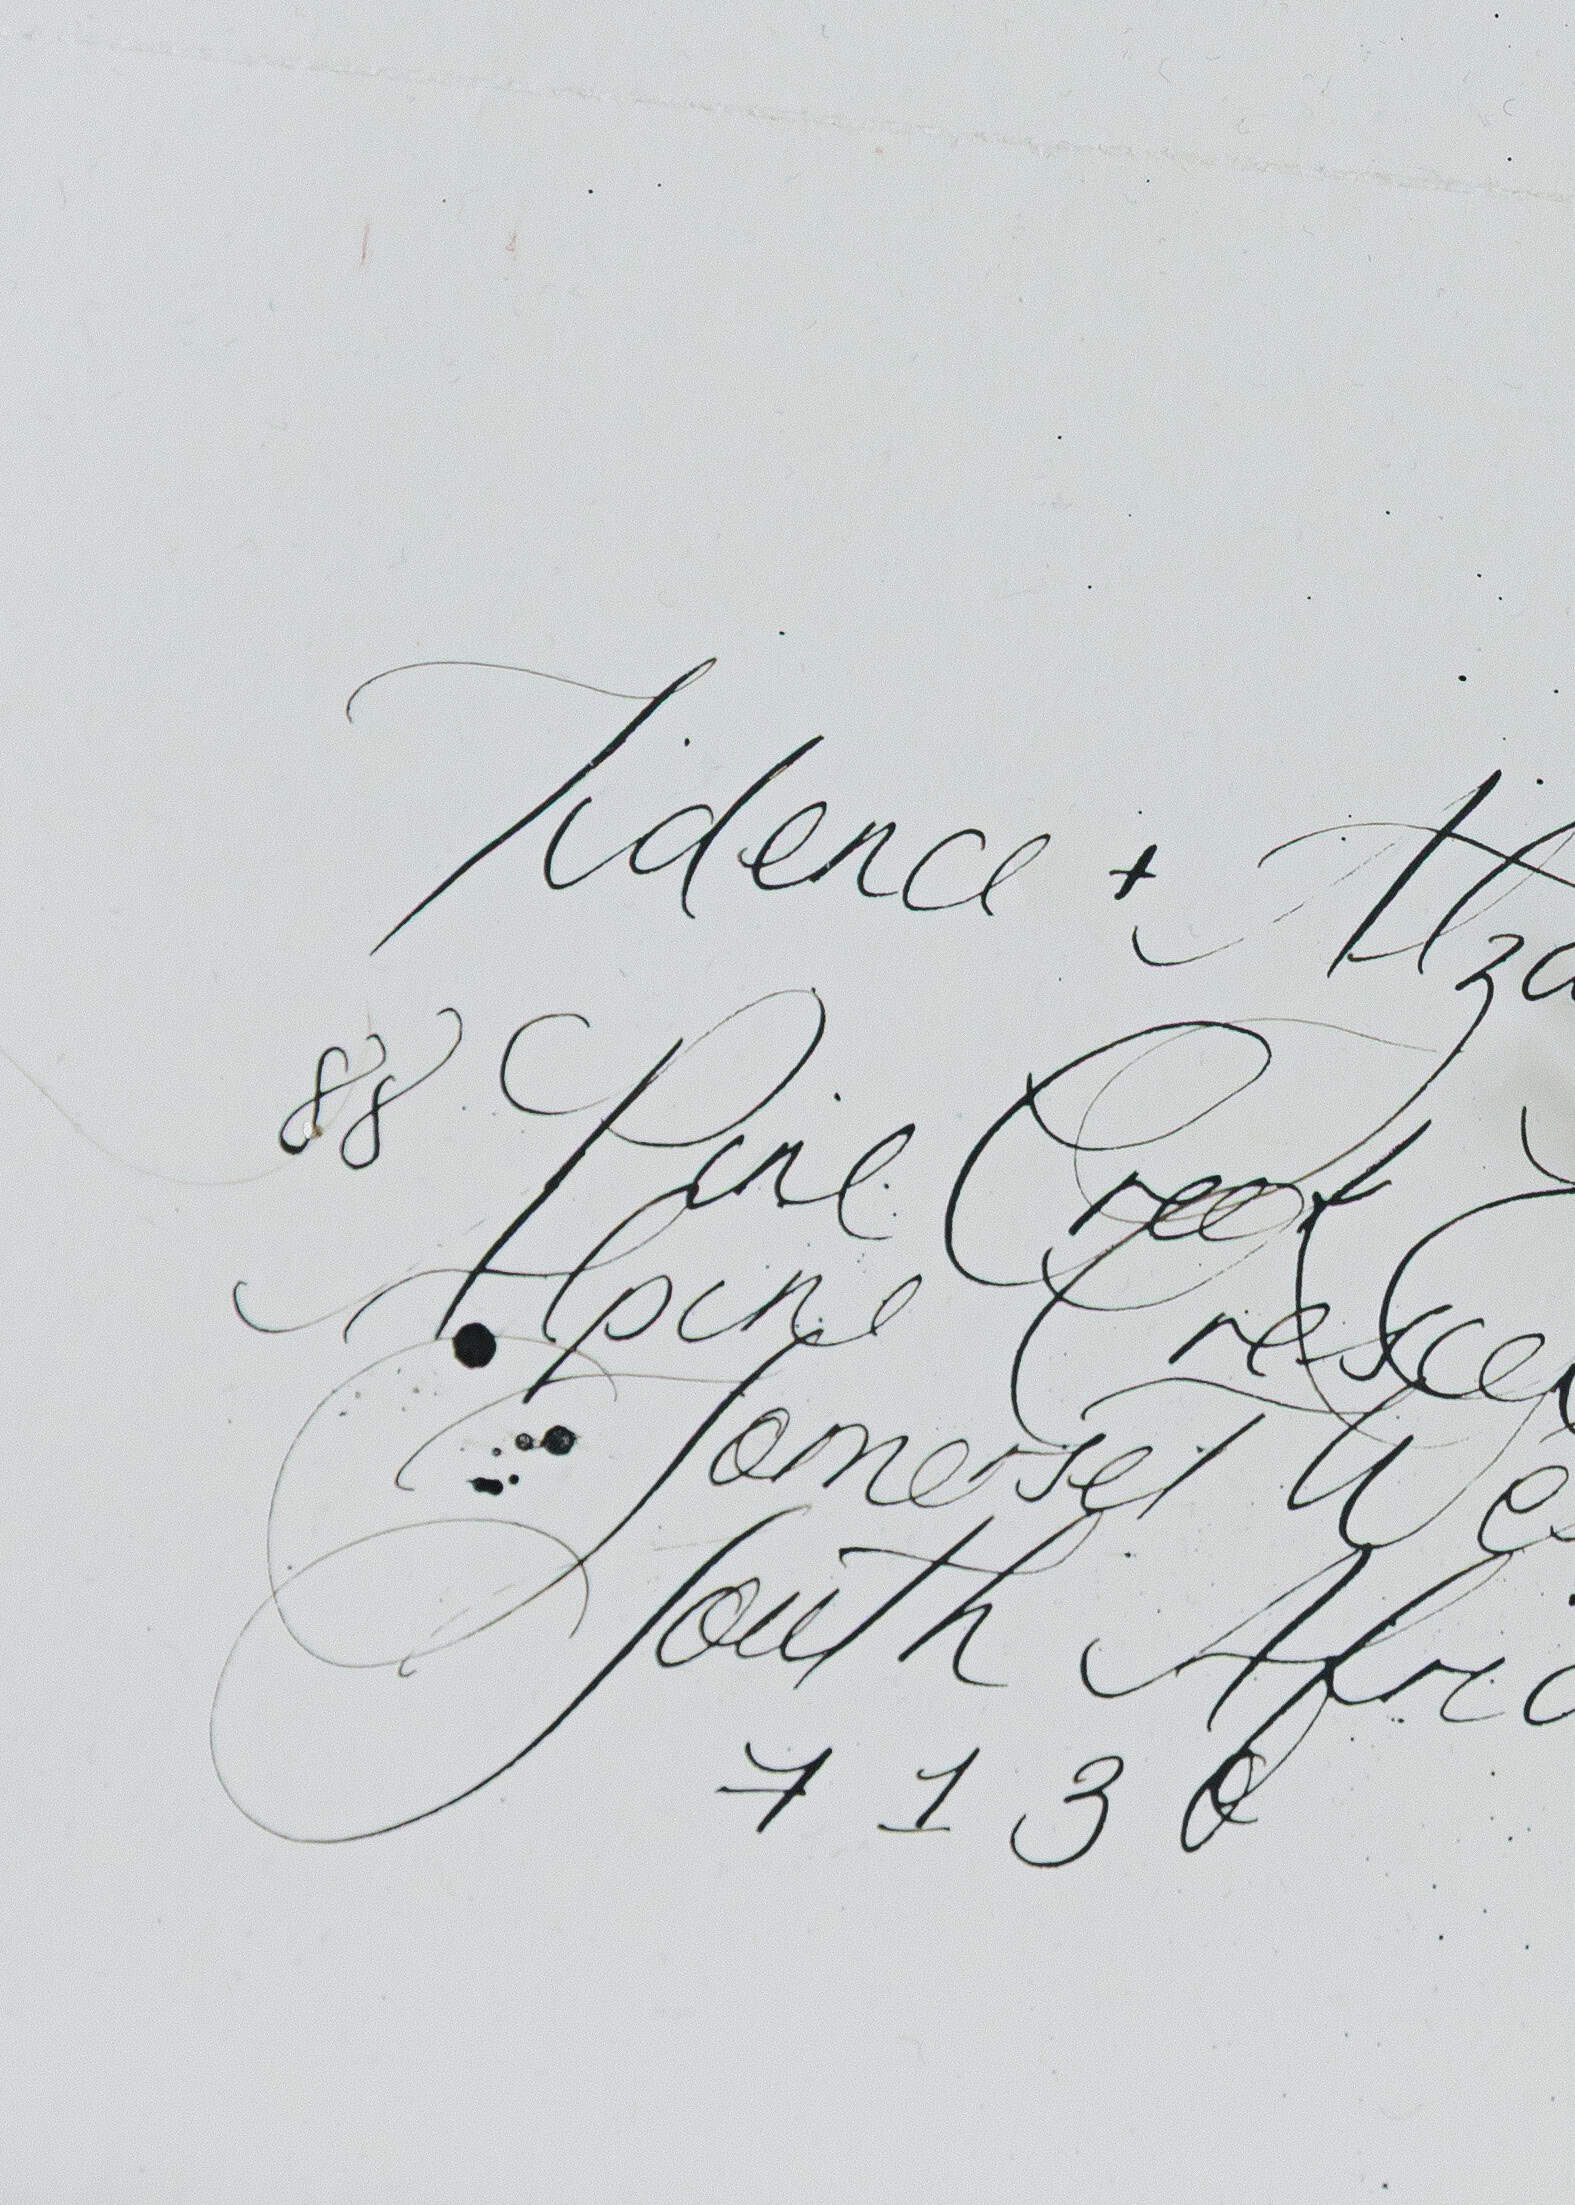 Tidence + Aza
88 Pine Creek
Alpine Crescen
Somerset Wes
South Afric
7130